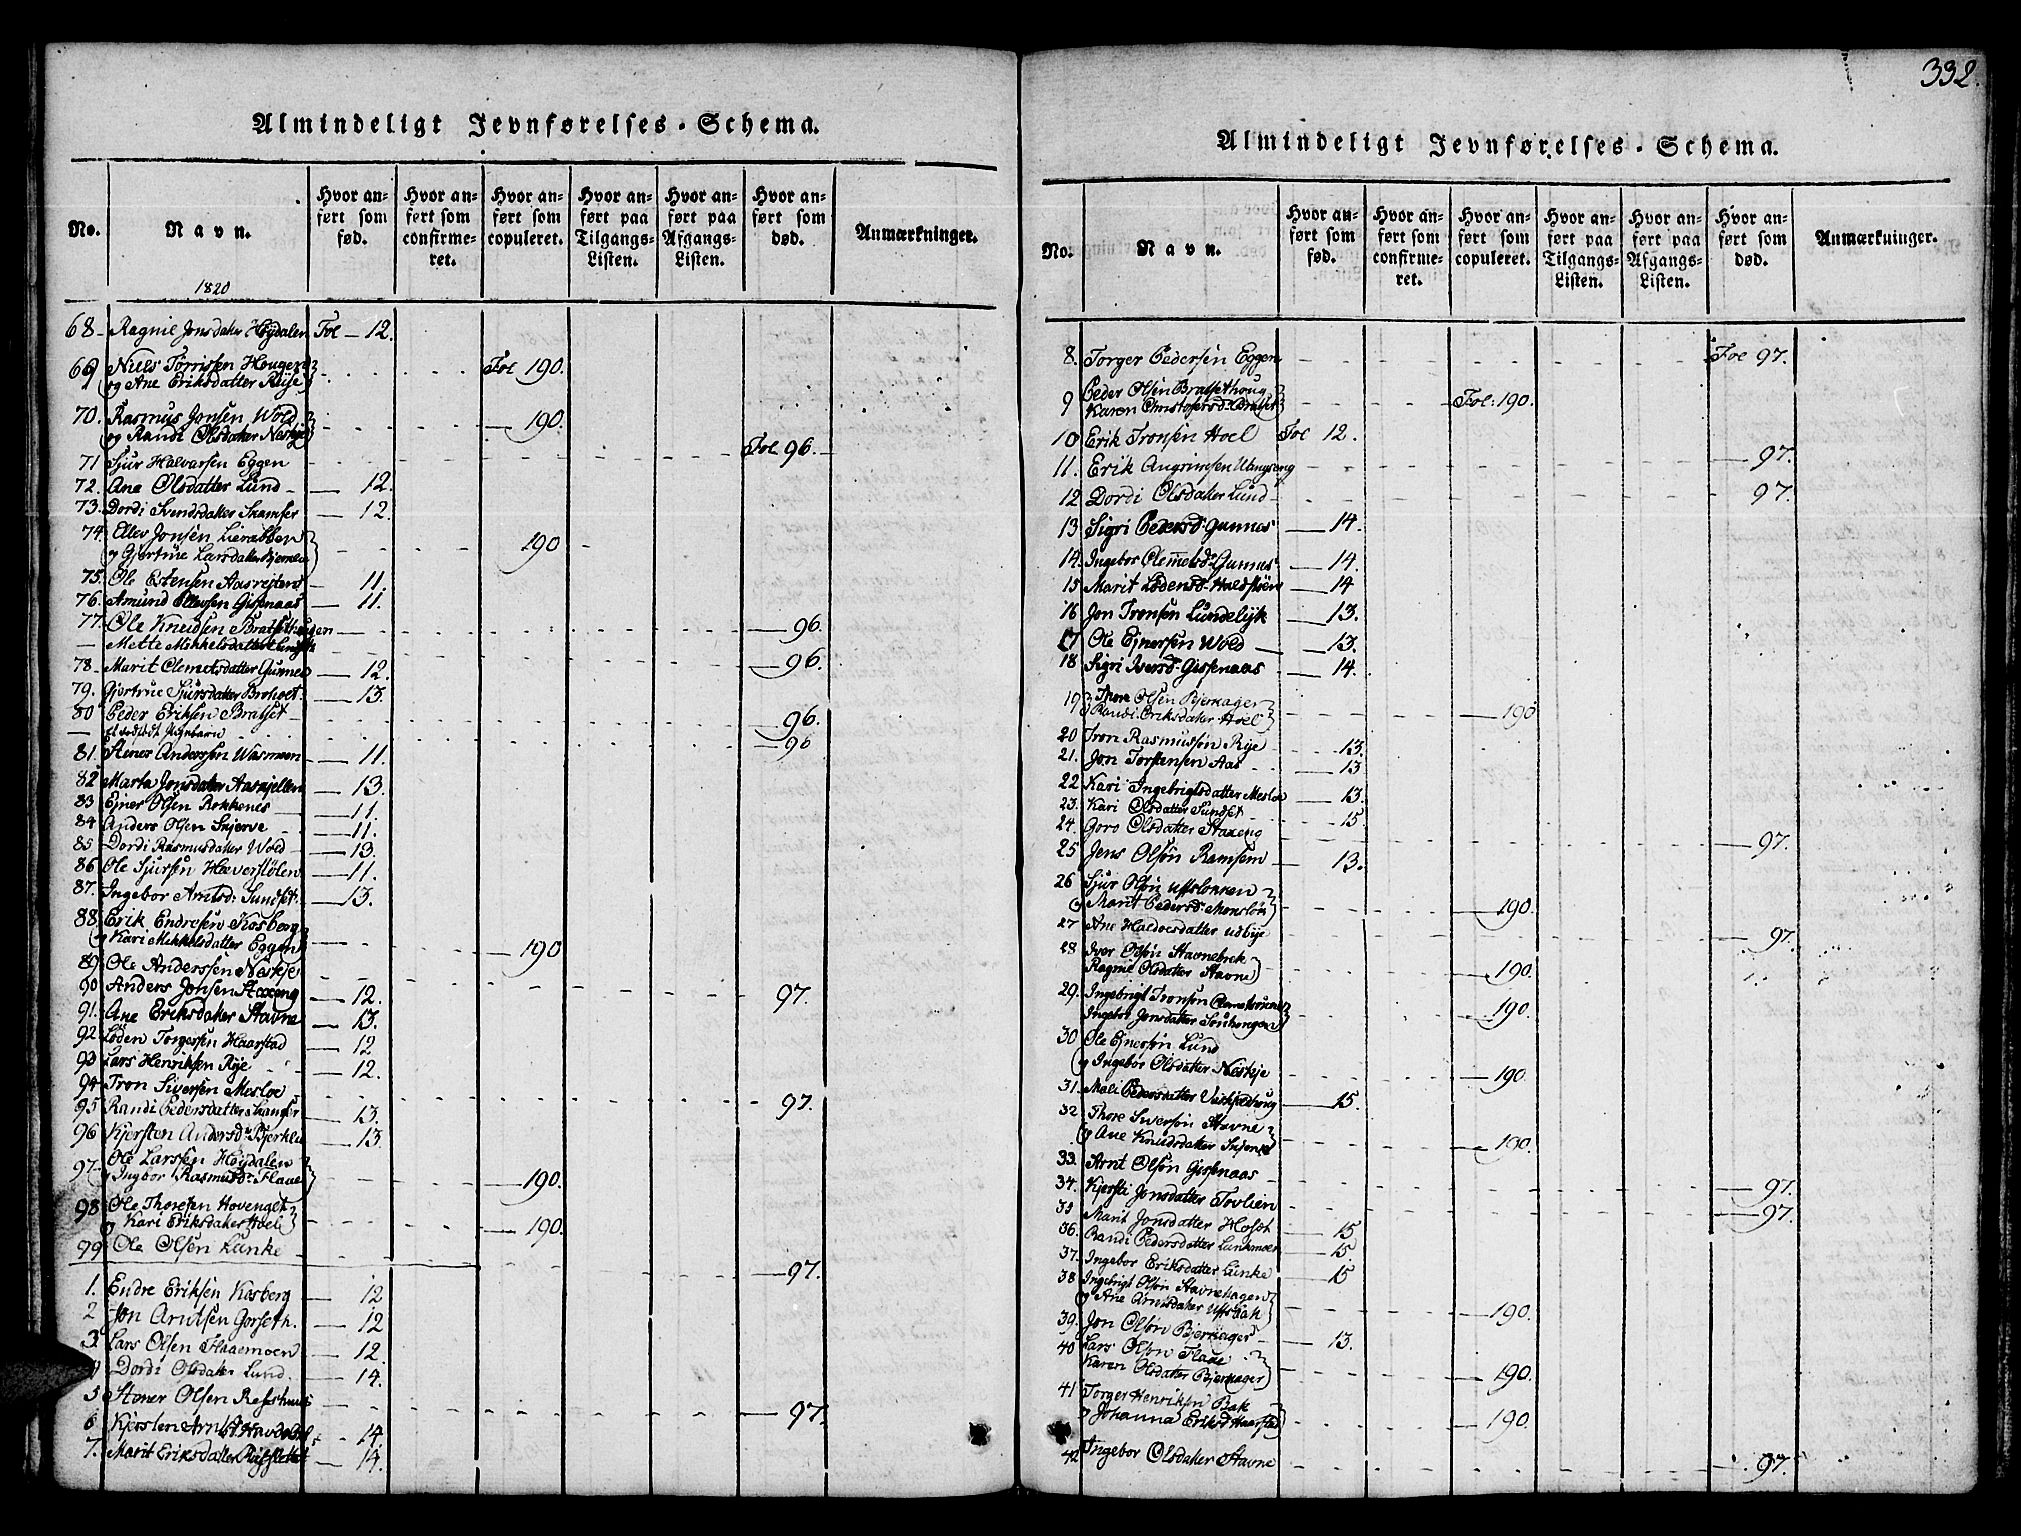 332.
Almindeligt Jevnførelses-Schema.
No. Navn. Hvor anført som fød. Hvor anført som confirmeret. Hvor anført som copuleret. Hvor anført paa Tilgangs-Listen. Hvor anført paa Afgangs-Listen. Hvor anført som død. Anmærkninger.
1820
68 Ragnil Jonsdatter Høydalen Fol 12.
69 Niels Torrissen Hougen
og Ane Eriksdatter Reise Fol 190.
70. Rasmus Jonsen Wold
og Randi Olsdatter Neskje 190.
71 Sjur Halvorsen Eggen Fol 96.
72. Ane Olsdatter Lund 12.
73. Dordi Svendsdatter Skamfer 12.
74. Ellev Jonsen
og Gjertrue Larsdatter 190
75. Ole Estensen 11.
76. Amund Ellevsen Gisenaas 11.
77. Ole Knudsen Bratsethougen 96.
Mette Mikkelsdatter 96.
78. Marit Clemetsdatter Gunnes 12.
79. Gjertrue Sjursdatter Broholt 13.
80 Peder Eriksen Bratset 96.
et dødfødt Pigebarn 96
81. Stener Anderssen 11.
82 Marta Jonsdatter 13.
83 Ejner Olsen Rokkenes 11.
84 Anders Olsen Skjerve 11.
85 Dordi Rasmusdatter Wold 13.
86 Ole Sjursen Hæverstølen 11.
87. Ingebor Arntsd: Sundset 13.
88. Erik Endresen Kosberg
og Kari Mikkelsdatter Eggen 190
89. Ole Anderssen Neskje 97.
90 Anders Jonsen Staxeng 12.
91. Ane Eriksdatter Stavne 13.
92. Loden Torgersen Haarstad 12
93 Lars Henriksen Rye 12.
94. Tron Siversen Mesloe 97.
95. Randi Pedersdatter Skamfer 13.
96 Kjersten Andersd: 13
97. Ole Larsen Høydalen
og Ingbor Rasmusd: Flaae 190.
98. Ole Thoresen Hovenget
og Kari Eriksdatter Hoel 190.
99. Ole Olsen Lunke 97.
1. Endre Eriksen Kosberg 12
2 Jon Arntsen Gorseth. 12
3. Lars Olsen Flaaemoen 12.
Dordi Olsdatter Lund. 14.
5 Stener Olsen Refshuus 97.
6 Kjersten 14
7. Marit Eriksdatter 14.
Almindeligt Jevnførelses-Schema.
No. Navn. Hvor anført som fød. Hvor anført som confirmeret. Hvor anført som copuleret. Hvor anført paa Tilgangs-Listen. Hvor anført paa Afgangs-Listen. Hvor anført som død. Anmærkninger.
8. Torger Pedersen Eggen Fol 97.
9 Peder Olsen Bratsethoug
Karen Christofersd: Bratset Fol: 190.
10 Erik Tronsen Hoel Fol 12.
11. Erik Angrimsen 97.
12 Dordi Olsdatter Lund 97.
13 Sigri Pedersd: Gunnes 14.
14. Ingebor Clemetsd: Gunnes 14.
15 Marit Lodensd: 14
16 Jon Tronsen Lundelykk 13.
17 Ole Ejnersen Wold 13.
18 Sigri Iversd: Gisenaas 14.
19 Thore Olsen Bjerkager
Randi Eriksdatter Hoel 190
20 Tron Rasmussøn Rye 13.
21. Jon Torstensen Aas 13
22. Kari Ingebrigtsdatter Mesloe 13.
23. Kari Olsdatter Sundset 15.
24. Goro Olsdatter Staxeng 97.
25 Jens Olsøn Ramsem 13.
26 Sjur Olsøn
Marit Pedersd: 190.
27 Ane Haldoesdatter 97.
28 Iver Olsøn Stavnebrek
Ragnil Olsdatter Stavne 190.
29. Ingebrigt Tronsøn
Ingebor Jonsdatter 190.
30 Ole Ejnersøn Lund
og Ingebor Olsdatter Neskje 190
31. Mali Pedersdatter 15.
32. Thore Siversøn Stavne
og Ane Knudsdatter 190.
33. Arnt Olsøn Gisenaas 97.
34. Kjersti Jonsdatter Tovlien 97.
35 Marit Jonsdatter 15
36. Randi Pedersdatter Lunkmoen 15
37. Ingebor Eriksdatter Lunke 15
38 Ingebrigt Olsøn Stavnehagen
og Ane Arntsdatter 190.
39. Jon Olsøn Bjerkager 13.
40 Lars Olsøn Flaae
Karen Olsdatter Bjerkager 190.
41 Torger Henriksen Bak
og Johanna Eriksd: Haarstad 190.
42 Ingebor Olsdatter Stavne 97.